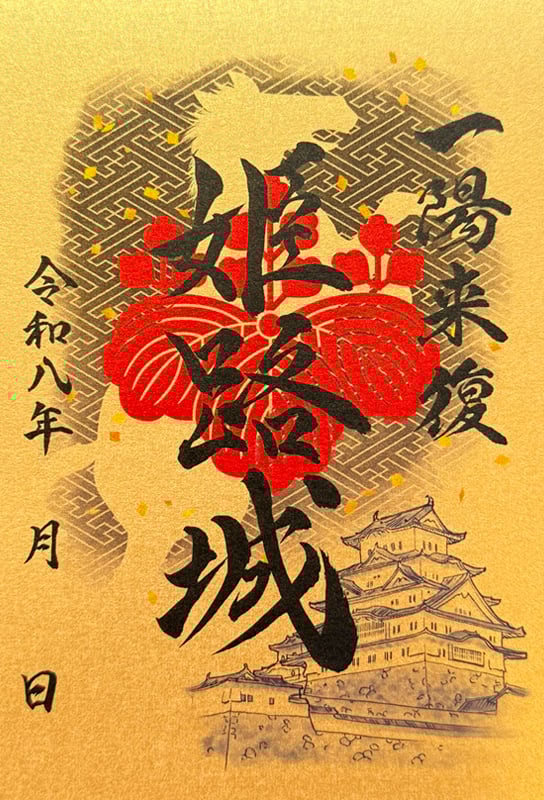 一陽来復
姫路城
令和八年 月 日